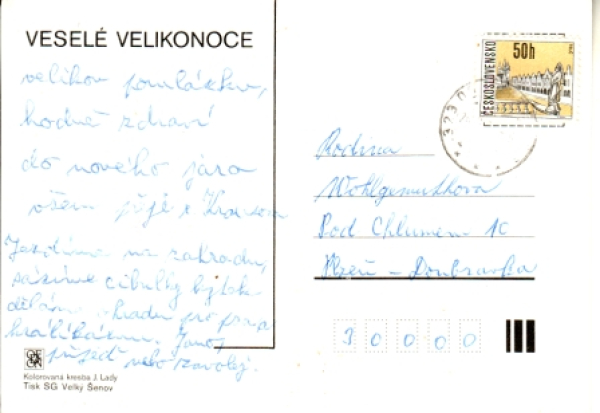 VESELÉ VELIKONOCE
velikou pomlázku,
hodně zdraví
do nového jara
všem přeje
Jezdíme na zahradu,
sázíme cibulky
děláme ohradu pro
přijeď nebo zavolej.
Kolorovaná kresba J. Lady
Tisk SG Velký Šenov
50h
ČESKOSLOVENSKO
Rodina
Wohlgemuthova
Pod Chlumem 1c
Plzeň - Doubravka
3 0 0 0 0